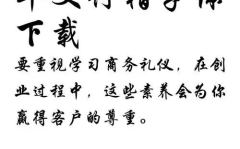 下载
要重视学习商务礼仪，在创
业过程中，这些素养会为你
赢得客户的尊重。